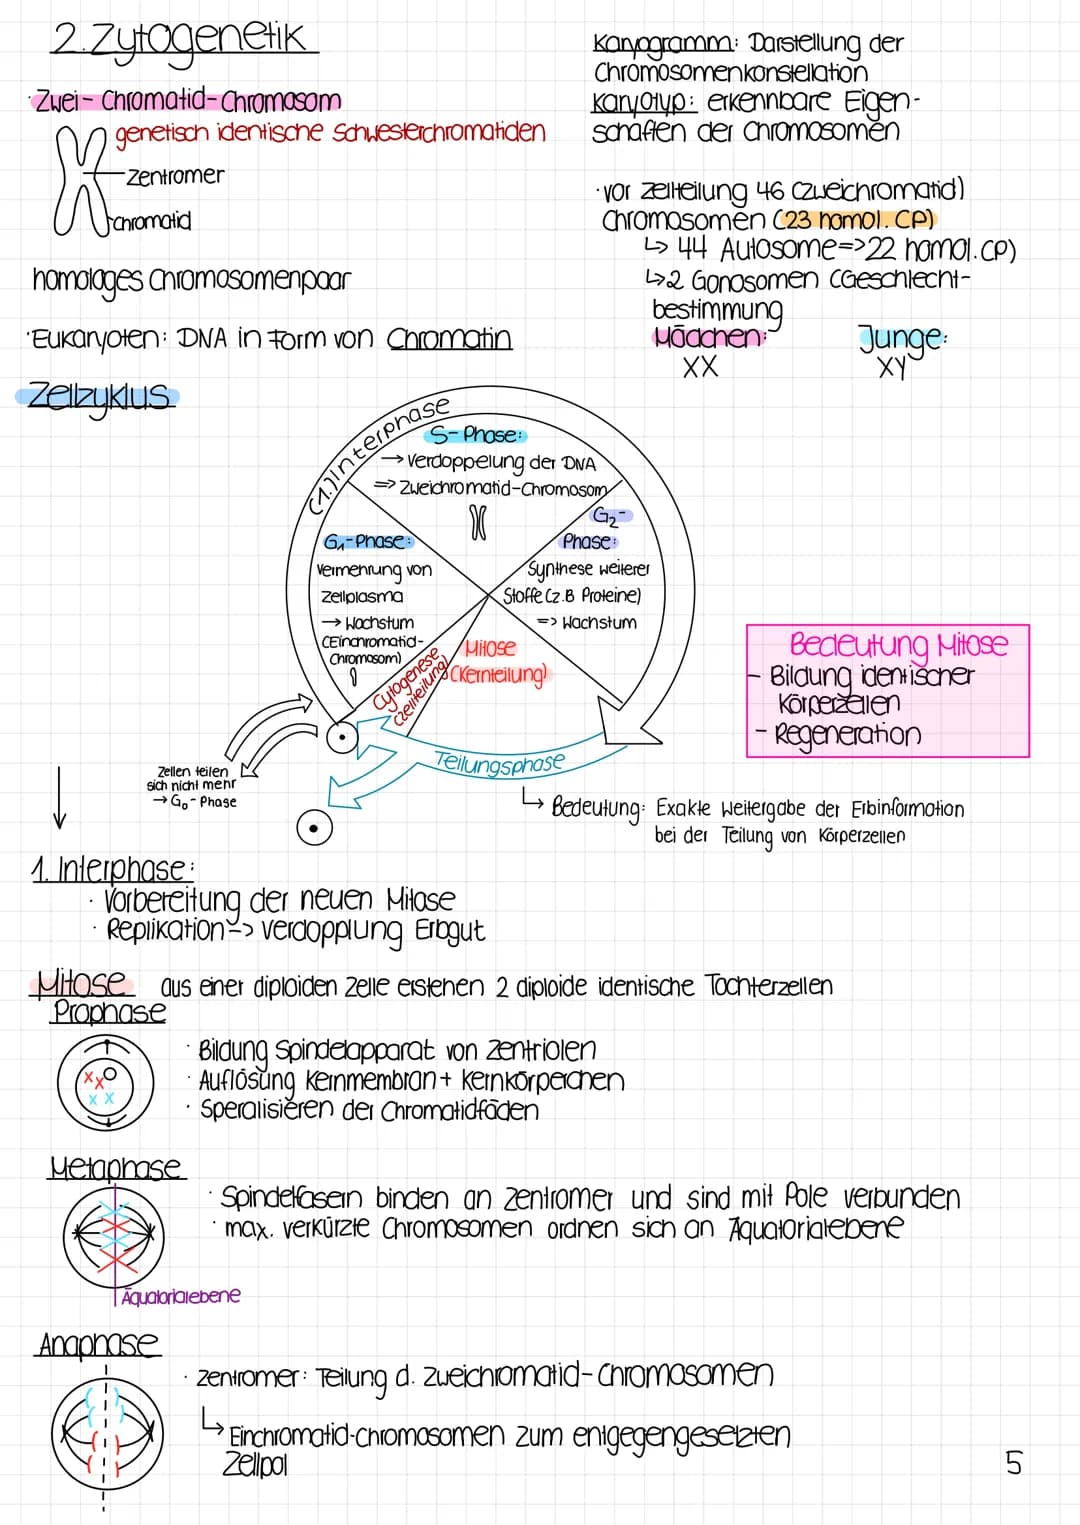 2. Zytogenetik
· Zwei-Chromatid-Chromosom
genetisch identische Schwesterchromatiden
Zentromer
Chromatid
homologes Chromosomenpaar
· Eukaryoten: DNA in Form von Chromatin
Karyogramm: Darstellung der
Chromosomenkonstellation
Karyotyp: erkennbare Eigen-
schaften der Chromosomen
· vor Zellteilung 46 (zweichromatid)
Chromosomen (23 homol. CP)
↳ 44 Autosome=>22 homol. CP)
↳2 Gonosomen (Geschlecht-
bestimmung
Mädchen:
XX
Junge:
XY
Zellzyklus
(1.) Interphase
S-Phase:
→ Verdoppelung der DNA
=> Zweichromatid-Chromosom
G1-Phase:
Vermehrung von
Zellplasma
→ Wachstum
(Einchromatid-
Chromosom)
G2-
Phase:
Synthese weiterer
Stoffe (z.B Proteine)
=> Wachstum
Cytogenese
(Zellteilung)
Mitose
(Kernteilung)
Teilungsphase
Zellen teilen
sich nicht mehr
→ G0-Phase
↳ Bedeutung: Exakte Weitergabe der Erbinformation
bei der Teilung von Körperzellen
Bedeutung Mitose
- Bildung identischer
Körperzellen
- Regeneration
1. Interphase:
· Vorbereitung der neuen Mitose
· Replikation -> Verdopplung Erbgut
Mitose aus einer diploiden Zelle erstehen 2 diploide identische Tochterzellen
Prophase
· Bildung Spindelapparat von Zentriolen
· Auflösung Kernmembran + Kernkörperchen
· Speralisieren der Chromatidfäden
Metaphase
· Spindelfasern binden an Zentromer und sind mit Pole verbunden
· max. verkürzte Chromosomen ordnen sich an Äquatorialebene
Äquatorialebene
Anaphase
· Zentromer: Teilung d. Zweichromatid-Chromosomen
↳ Einchromatid-Chromosomen zum entgegengesetzten
Zellpol
5